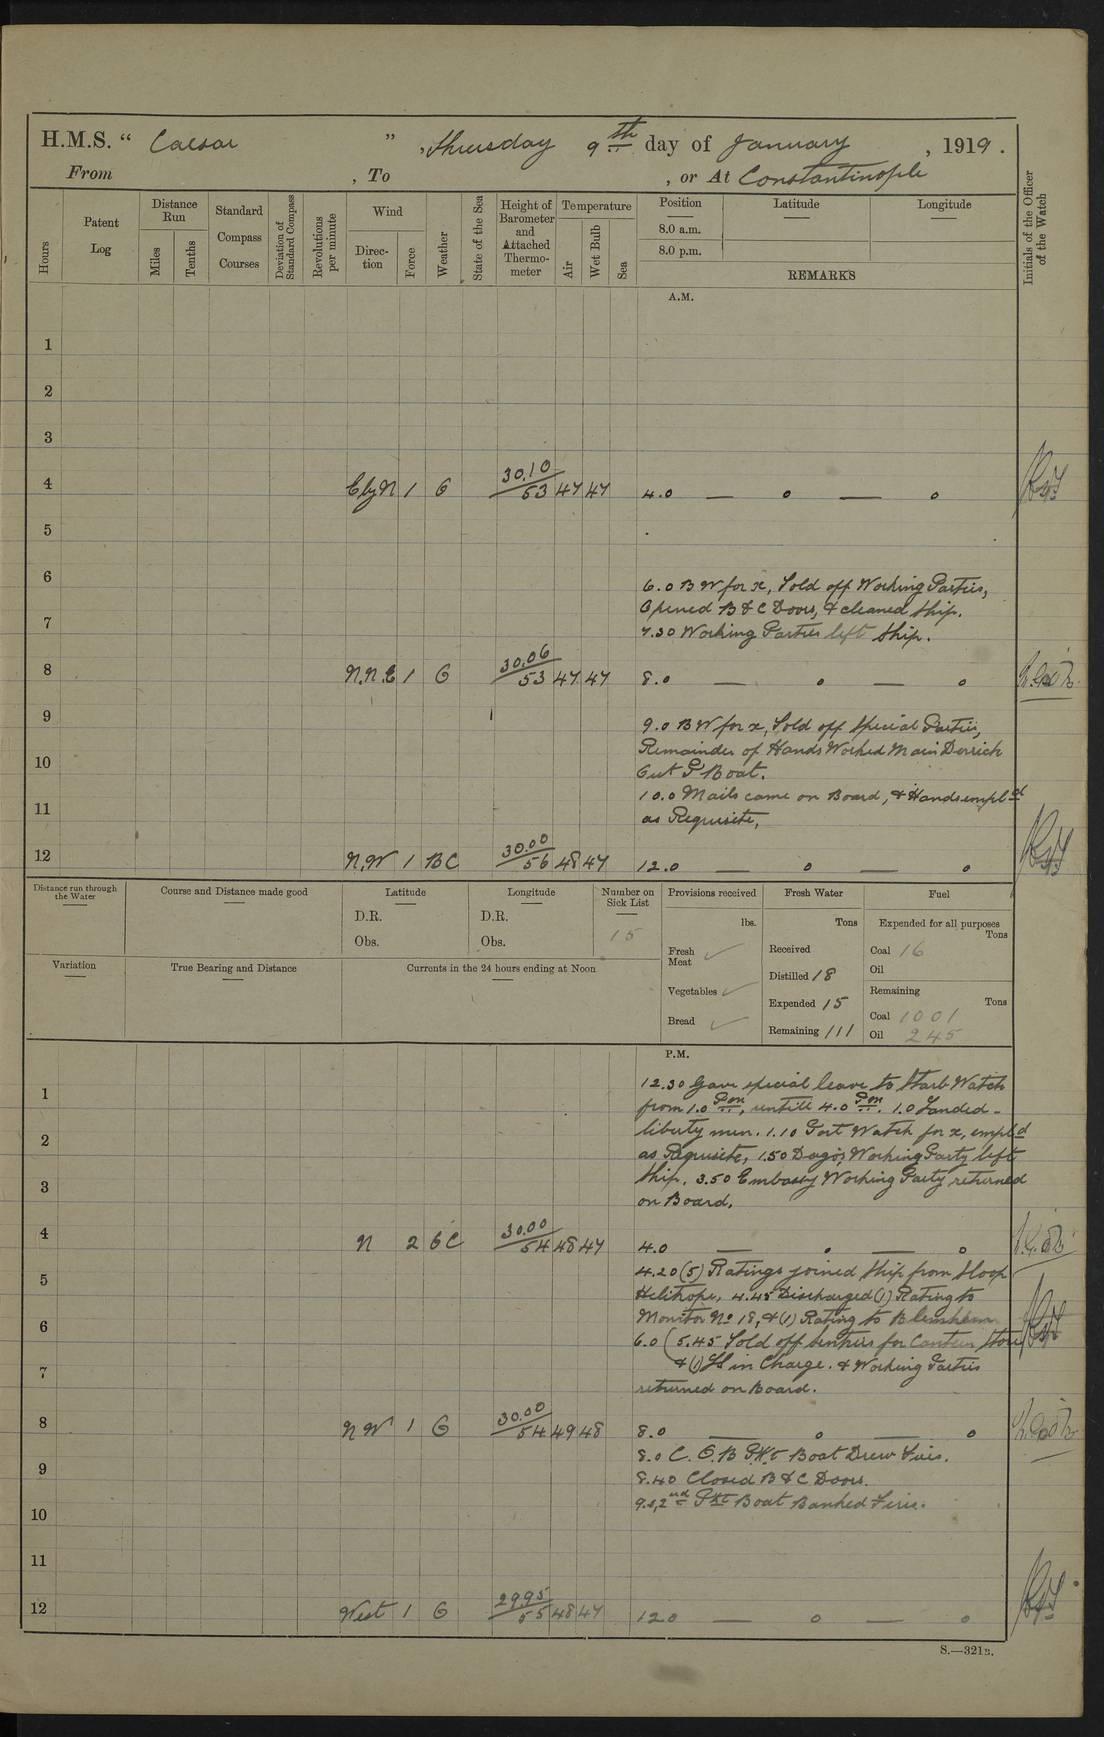 H.M.S. “ Caesar ” , Thursday 9th day of January , 1919 .
From , To , or At Constantinople
Hours
Patent Log
Distance Run
Miles
Tenths
Standard Compass Courses
Deviation of Standard Compass
Revolutions per minute
Wind
Direc-tion
Force
Weather
State of the Sea
Height of Barometer and Attached Thermo-meter
Temperature
Air
Wet Bulb
Sea
Position
8.0 a.m.
8.0 p.m.
Latitude
Longitude
REMARKS
Initials of the Officer of the Watch
A.M.
1
2
3
4 EbyN 1 C 30.10/53 47 47 4.0 — o — o
5
6
6.0 B W for x, Told off Working Parties,
Opened B & C Doors, & cleaned Ship.
7
7.30 Working Parties left Ship.
8 N.N.E 1 C 30.06/53 47 47 8.0 — o — o
9
9.0 B W for x, Told off Special Parties,
Remainder of Hands Worked Main Derrick
10
Out P Boat.
10.0 Mails came on Board, & Hands empld
11
as Requisite,
12 N.W 1 BC 30.00/56 48 47 12.0 — o — o
Distance run through the Water
Course and Distance made good
Latitude
D.R.
Obs.
Longitude
D.R.
Obs.
Number on Sick List
15
Provisions received
lbs.
Fresh Meat ✓
Vegetables ✓
Bread ✓
Fresh Water
Tons
Received
Distilled 18
Expended 15
Remaining 111
Fuel
Expended for all purposes
Tons
Coal 16
Oil
Remaining
Tons
Coal 1001
Oil 245
Variation
True Bearing and Distance
Currents in the 24 hours ending at Noon
P.M.
12.30 Gave special leave to Starb Watch
1
from 1.0 Pm, untill 4.0 Pm. 1.0 Landed -
2
liberty men. 1.10 Port Watch for x, empld
as Requisite, 1.50 Working Party left
3
Ship. 3.50 Embassy Working Party returned
on Board.
4 N 2 BC 30.00/54 48 47 4.0 — o — o
5
4.20 (5) Ratings joined Ship from Sloop
Helitrope, 4.45 Discharged (1) Rating to
6
Monitor No 18, & (1) Rating to Blenheim
6.0 (5.45 Told off sentries for Canteen Store
& (1) LS in Charge. & Working Parties
7
returned on Board.
8 NW 1 C 30.00/54 49 48 8.0 — o — o
8.0 C. O.B Pkt Boat Drew Fires.
9
8.40 Closed B & C Doors.
2nd Pkt Boat Banked Fires.
10
11
12 West 1 C 29.95/55 48 47 12.0 — o — o
S.—321B.